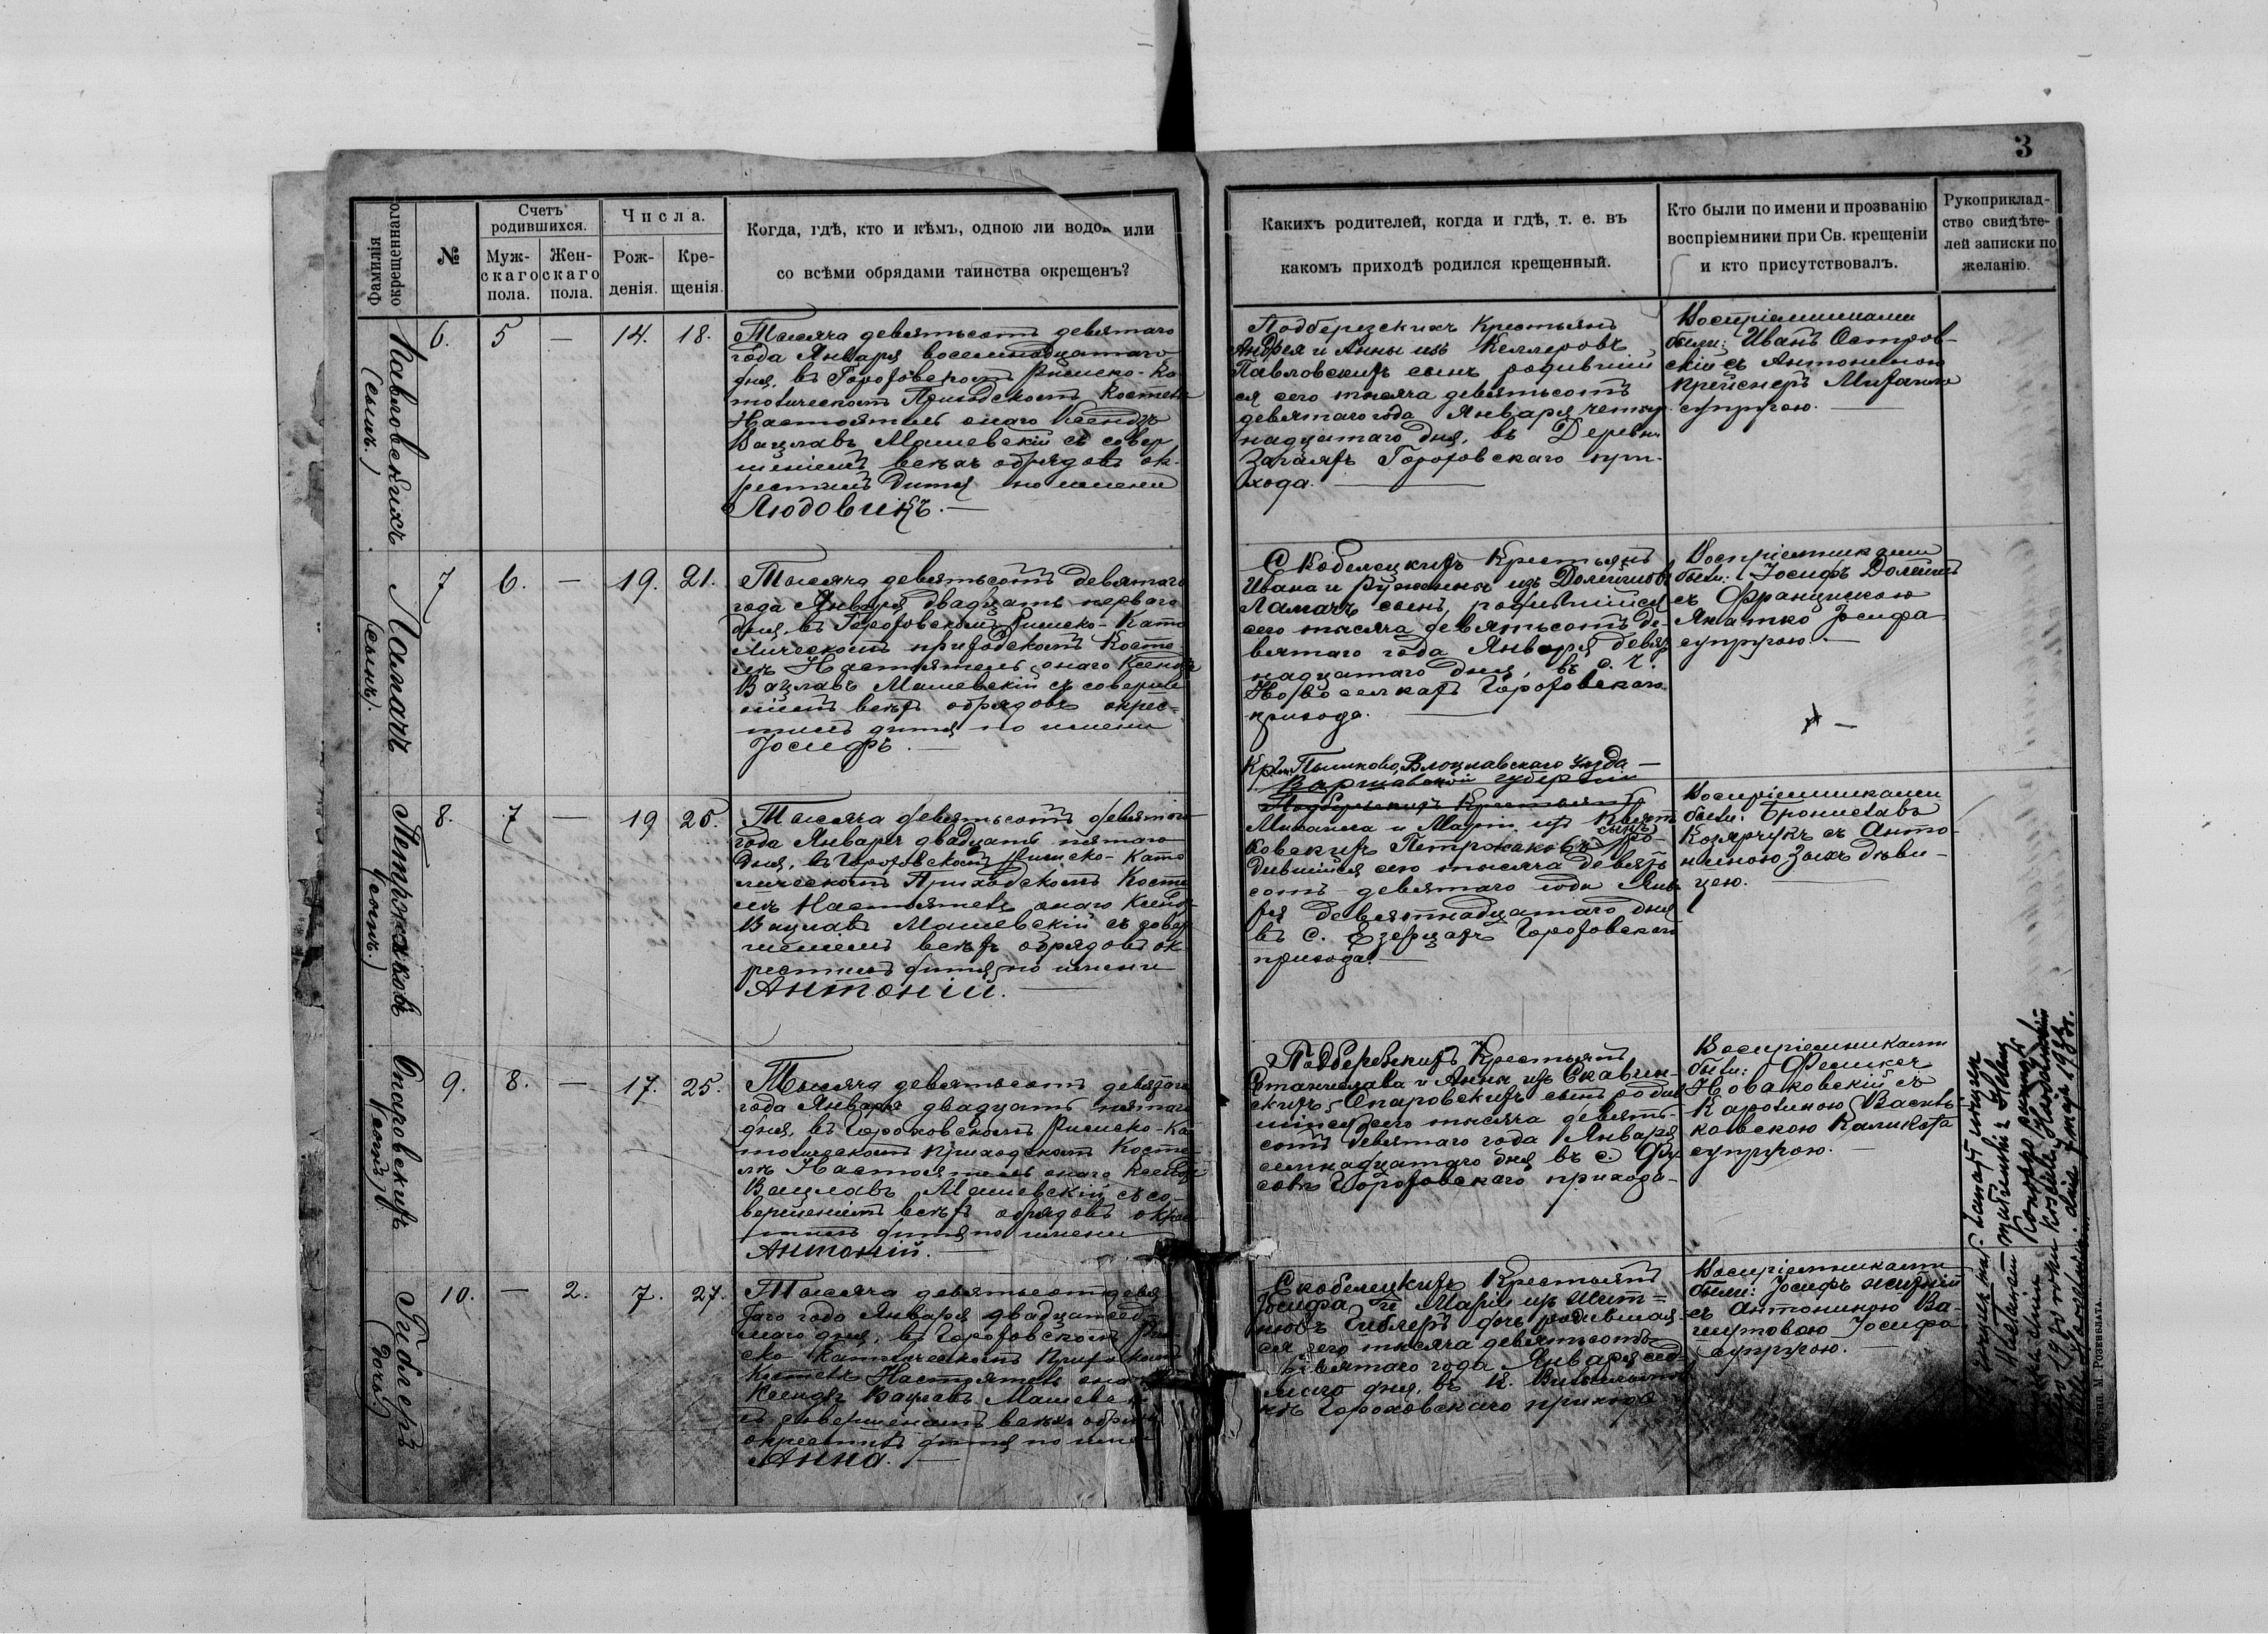 3
Фамилія окрещеннаго.
№
Счетъ родившихся.
Муж-скаго пола.
Жен-скаго пола.
Числа.
Рож-денія.
Кре-щенія.
Когда, гдѣ, кто и кѣмъ, одною ли водою или
со всѣми обрядами таинства окрещенъ?
Какихъ родителей, когда и гдѣ, т. е. въ
какомъ приходѣ родился крещенный.
Кто были по имени и прозванію
воспріемники при Св. крещеніи
и кто присутствовалъ.
Рукоприклад-
ство свидѣте-
лей записки по
желанію.
Павловскихъ
(сынъ.)
6. 5 — 14. 18.
Тысяча девятьсотъ девятаго
года Января восемнадцатаго
дня, въ Гороховскомъ Римско-Ка
толическомъ Приходскомъ Костелѣ
Настоятель онаго Ксендзъ
Вацлавъ Машевскій съ совер
шеніемъ всѣхъ обрядовъ ок-
рестилъ дитя по имени
Людовикъ. —
Подберезскихъ Крестьянъ
Андрея и Анны изъ Келлеровъ
Павловскихъ сынъ родившій
ся сего тысяча девятьсотъ
девятаго года Января четыр
надцатаго дня, въ Деревни
Загаяхъ Гороховскаго при-
хода. —
Воспріемниками
были: Иванъ Остров-
скій съ Антониною
Крейснеръ Михаила
супругою. —
Ламачъ
(сынъ).
7 6. — 19. 21.
Тысяча девятьсотъ девятаго
года Января двадцать перваго
дня, въ Гороховскомъ Римско-Като
лическомъ приходскомъ Косте
лѣ Настоятель онаго Ксендзъ
Вацлавъ Машевскій съ соверше
ніемъ всѣхъ обрядовъ окрес=
тилъ дитя по имени
Іосифъ. —
Скобелецкихъ Крестьянъ
Ивана и Ружены изъ
Ламачъ сынъ, родившійся
сего тысяча девятьсотъ де-
вятаго года Января девят
надцатаго дня, въ с. ч.
Новоселкахъ Гороховскаго
прихода. —
Воспріемниками
были: Іосифъ
съ Францискою
Іосифа
супругою. —
Петржаковъ
(сынъ.)
8. 7 — 19 25.
Тысяча девятьсотъ девятаго
года Января двадцать пятаго
дня, въ Гороховскомъ Римско-Като
лическомъ Приходскомъ Косте
лѣ Настоятель онаго Ксендзъ
Вацлавъ Машевскій съ совер
шеніемъ всѣхъ обрядовъ ок
рестилъ дитя по имени
Антоній. —
Кр. Влоцлавскаго уѣзда —
Варшавской губерніи
Михаила и Маріи изъ Квят
ковскихъ Петржаковъ сынъ ро-
дившійся сего тысяча девять
сотъ девятаго года Янва
ря девятнадцатаго дня
въ с. Езерцахъ Гороховскаго
прихода. —
Воспріемниками
были: Брониславъ
Козярчукъ съ Анто-
ниною Зыхъ дѣви-
цею. —
Опаровскихъ
(сынъ).
9. 8. — 17. 25.
Тысяча девятьсотъ девятаго
года Января двадцать пятаго
дня, въ Гороховскомъ Римско-Ка
толическомъ приходскомъ Косте-
лѣ Настоятель онаго Ксендзъ
Вацлавъ Машевскій съ со-
вершеніемъ всѣхъ обрядовъ окре
стилъ дитя по имени
Антоній. —
Подберезскихъ Крестьянъ
Станислава и Анны изъ Скавин-
скихъ Опаровскихъ сынъ родив
шійся сего тысяча девять-
сотъ девятаго года Января
семнадцатаго дня въ с.
Гороховскаго прихода-
Воспріемниками
были: Феликсъ
Новаковскій съ
Каролиною Васьть
ковскою Каликста
супругою. —
Гиблеръ
(дочь)
10. — 2. 7. 27.
Тысяча девятьсотъ девя
таго года Января двадцать сед
маго дня, въ Гороховскомъ Рим
ско Католическомъ Приходскомъ
Костелѣ Настоятель онаго
Ксендзъ Вацлавъ Машевскій
съ совершеніемъ всѣхъ обрядовъ
окрестилъ дитя по имени
Анна. —
Скобелецкихъ Крестьянъ
Іосифа и Маріи изъ
Гиблеръ дочь родившая
ся сего тысяча девятьсотъ
девятаго года Января сед
маго дня, въ
Гороховскаго прихода
Воспріемниками
были: Іосифъ
съ Антониною Ва-
шутовою Іосифа
супругою. —
dnia 7 maja 1938 r.
тип. М. Розенблата.